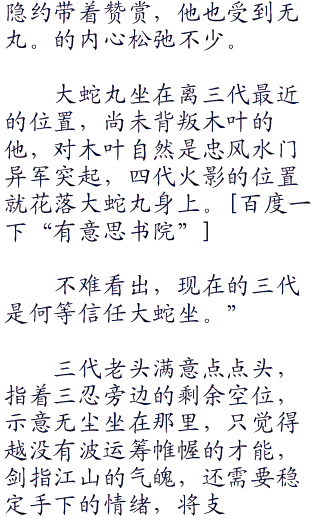 隐约带着赞赏，他也受到无
丸。的内心松弛不少。
大蛇丸坐在离三代最近
的位置，尚未背叛木叶的
他，对木叶自然是忠风水门
异军突起，四代火影的位置
就花落大蛇丸身上。[百度一
下“有意思书院”]
不难看出，现在的三代
是何等信任大蛇坐。”
三代老头满意点点头，
指着三忍旁边的剩余空位，
示意无尘坐在那里，只觉得
越没有波运筹帷幄的才能，
剑指江山的气魄，还需要稳
定手下的情绪，将支